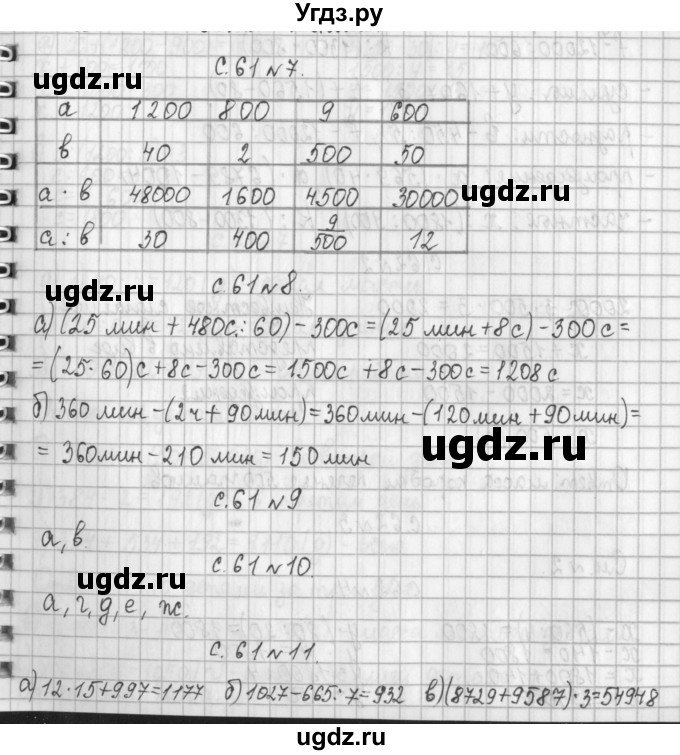 Угдз.ру
ugdz.ru
с.61 №7.
а 1200 800 9 600
в 40 2 500 50
а · в 48000 1600 4500 30000
ugdz.ru
а : в 30 400 9/500 12
ugdz.ru
с.61 №8.
а) (25 мин + 480с : 60) - 300с = (25 мин + 8с) - 300с =
= (25·60)с + 8с - 300с = 1500с + 8с - 300с = 1208с
б) 360 мин - (2ч + 90мин) = 360мин - (120мин + 90мин) =
ugdz.ru
= 360мин - 210 мин = 150мин
с.61 №9
а, в.
ugdz.ru
с.61 №10.
ugdz.ru
а, г, д, е, ж.
с. 61 №11.
а) 12·15+997=1177 б) 1027-665:7=932 в) (8729+9587)·3=54948
ugdz.ru
ugdz.ru